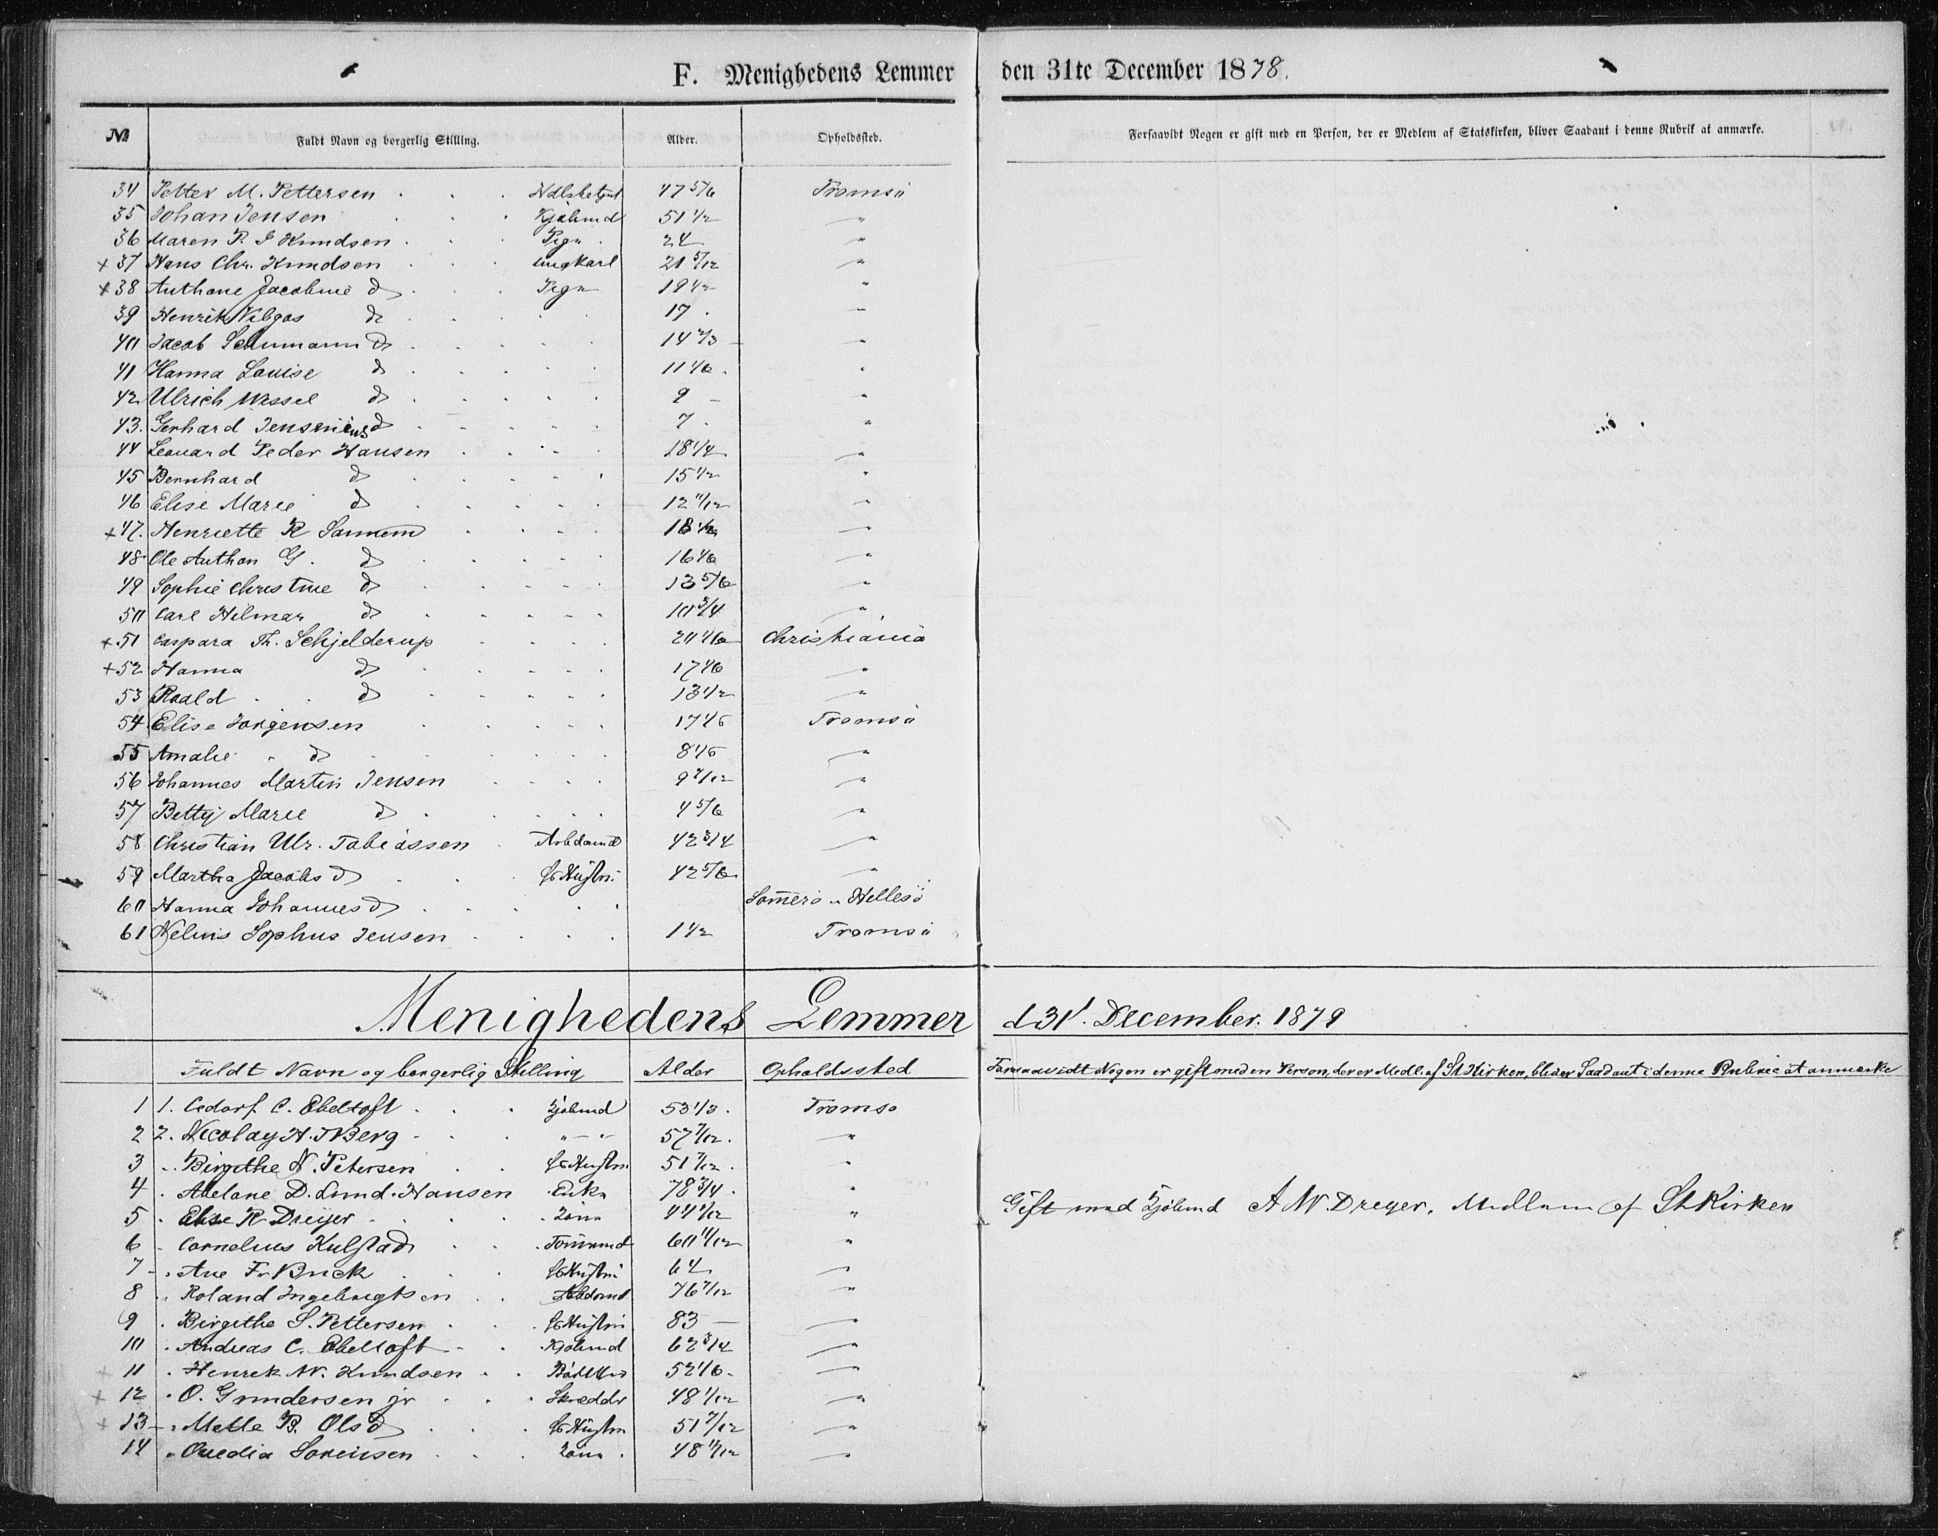 F. Menighedens Lemmer den 31te December 1878.
№ Fuldt Navn og borgerlig Stilling. Alder. Opholdssted. Forsaavidt Nogen er gift med en Person, der er Medlem af Statskirken, bliver Saadant i denne Rubrik at anmærke.
34 Petter M. Pettersen 47 5/6 Tromsö
35 Johan Jensen Kjöbmd 51 1/2 "
36 Maren P. J Knudsen Pige 24 "
+ 37 Hans Chr. Knudsen ungkarl 21 5/12 "
+ 38 Anthone Jacobine do Pige 19 1/2 "
39 Henrik do 17 "
40 Jacob Schumann do 14 2/3 "
41 Hanna Louise do 11 1/6 "
42 Ulrich Wessel do 9 "
43. Gerhard do 7 "
44 Leonard Peder Hansen 18 1/4 "
45 Bernhard do 15 1/2 "
46 Elise Marie do 12 11/12 "
+ 47. Henriette R Sannem 18 "
48 Ole Anthon G. do 16 1/6 "
49 Sophie Christine do 13 5/6 "
50 Carl Hilmar do 10 3/4 "
+ 51 Caspara Th. Schjelderup 20 1/6 Christiania
+ 52 Hanna do 17 1/6 "
53 Roald do 13 1/2 "
54 Elise Jørgensen 17 1/6 Tromsö
55 Amalie do 8 1/6 "
56 Johannes Martin Jensen 9 7/12 "
57 Betty Marie do 4 5/6 "
58 Christian Ulr. Tobiassen Arbdsmd 42 3/4 "
59 Martha Jacobsd Hustru 42 5/6 "
60 Hanna Johannesd Somerö Hellesö
61 Sophus Jensen 1 1/2 Tromsö
Menighedens Lemmer d 31t. December. 1879
Fuldt Navn og borgerlig Stilling Alder Opholdssted Forsaavidt Nogen er gift med en Person, der er Medl. af St.Kirken, bliver Saadant i denne Rubric at anmærke
1 1. C. Ebeltoft Kjöbmd 53 1/3. Tromsø
2 2. Nicolay H. J Berg " 57 7/12. "
3 Birgithe N. Petersen Hustru 51 7/12. "
4 Abelone D. Lund-Hansen Enke 78 3/4. "
5 Else R Dreyer Kone 44 1/12 " Gift med Kjöbmd A W. Dreyer, Medlem af St Kirken
6 Cornelius Kulstad Tømmrmd 60 11/12 "
7 Ane Fr Buck Hustru 64 "
8 Roland Ingebrigtsen Arbdsmd 76 7/12 "
9 Birgithe S. Pettersen Hustru 83 "
10 Andreas C. Ebeltoft Kjöbmd 62 3/4 "
+ 11 Henrik W. Knudsen 52 1/6. "
+ 12 O. Gundersen jr Skrædder 48 1/12 "
+ 13 Mette B. Olsd Hustru 51 7/12 "
14 Ovedia Sorensen Kone 48 11/12 "